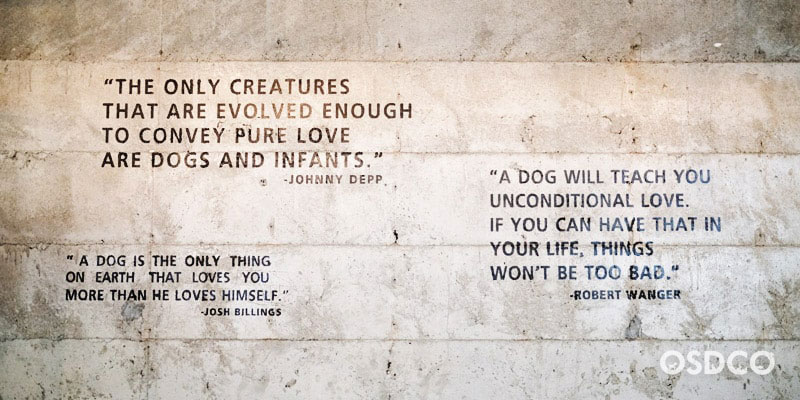 “THE ONLY CREATURES
THAT ARE EVOLVED ENOUGH
TO CONVEY PURE LOVE
ARE DOGS AND INFANTS.”
-JOHNNY DEPP
“A DOG WILL TEACH YOU
UNCONDITIONAL LOVE.
IF YOU CAN HAVE THAT IN
YOUR LIFE, THINGS
WON'T BE TOO BAD.“
-ROBERT WANGER
“ A DOG IS THE ONLY THING
ON EARTH THAT LOVES YOU
MORE THAN HE LOVES HIMSELF.”
-JOSH BILLINGS
OSDCO